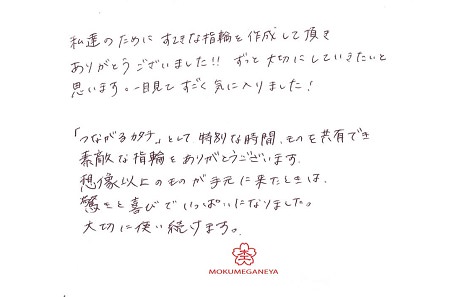 私達のために すてきな指輪を作成して頂き
ありがとうございました!! ずっと大切にしていきたいと
思います。一目見て すごく気に入りました!
「つながるカタチ」として 特別な時間、ものを共有でき
素敵な指輪をありがとうございます。
想像以上のものが手元に来たときは、
驚きと喜びでいっぱいになりました。
大切に使い続けます。
MOKUMEGANEYA